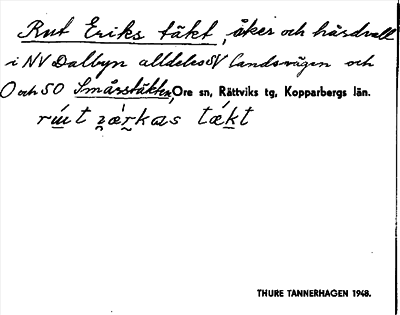 Rut Eriks täkt, åker och hårdvall
i NV Dalbyn alldeles SV landsvägen och
O och SO Smårstäkten, Ore sn, Rättviks tg, Kopparbergs län.
THURE TANNERHAGEN 1948.